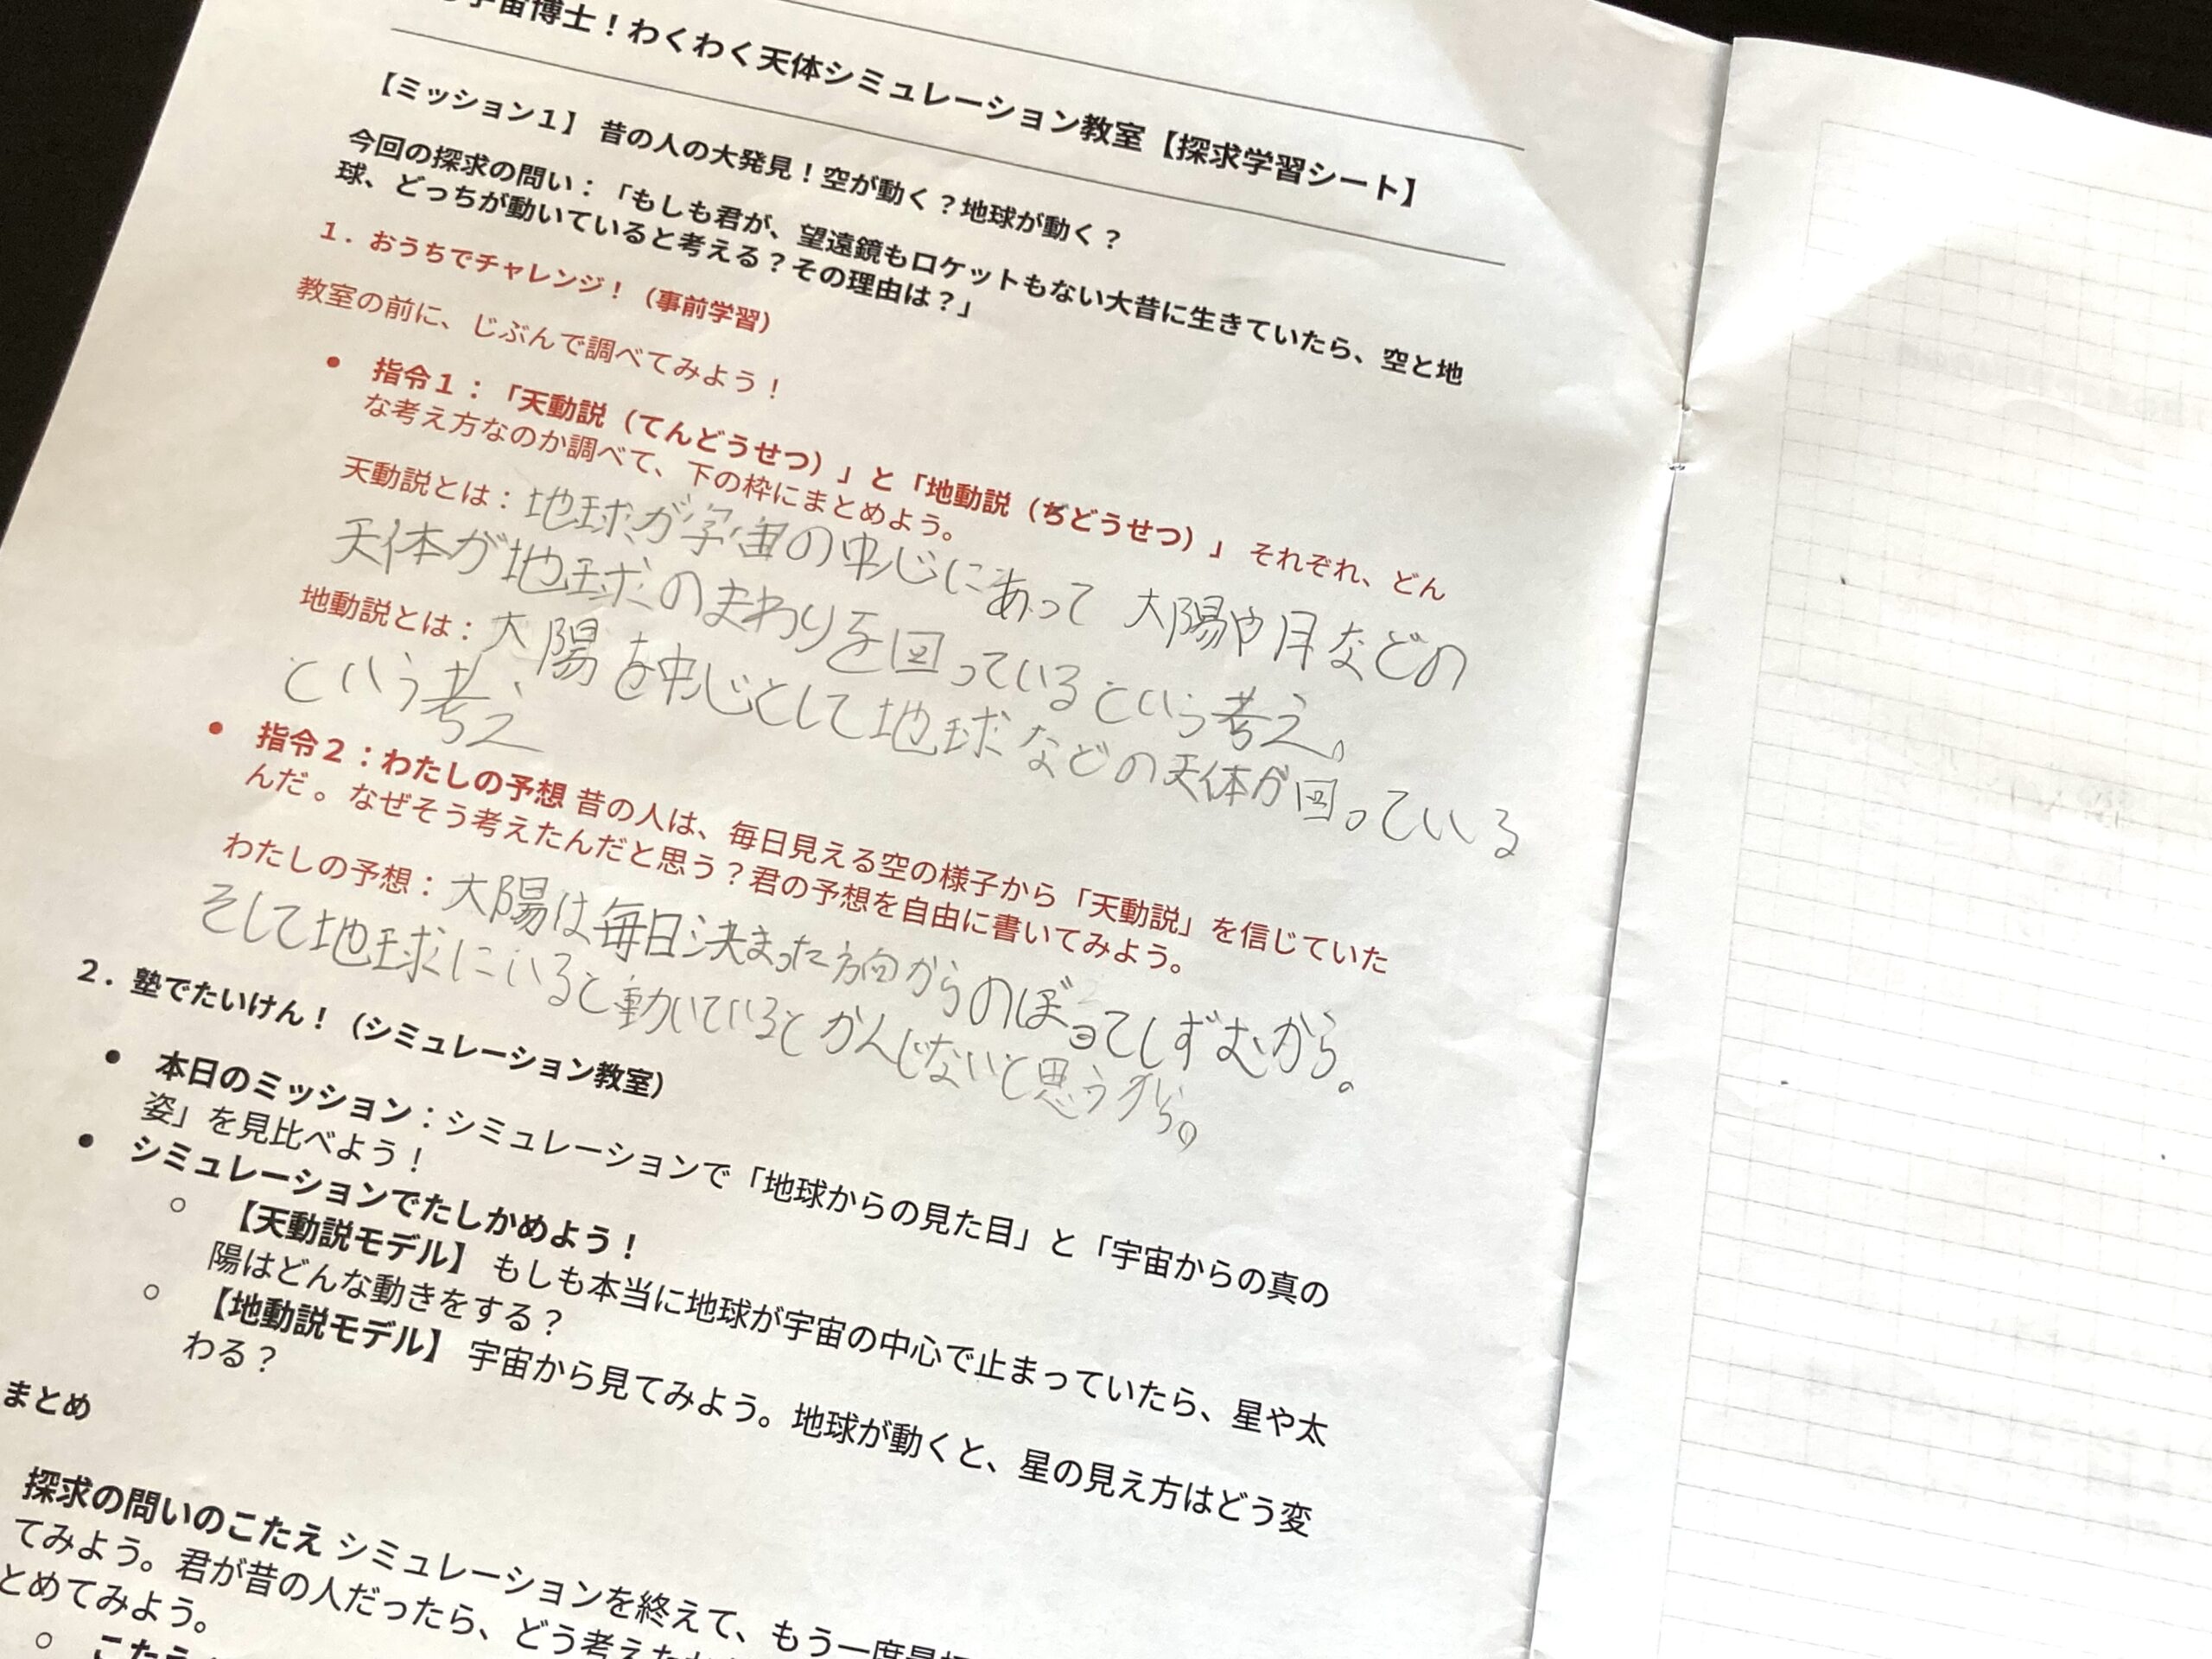 宇宙博士！わくわく天体シミュレーション教室【探求学習シート】
【ミッション１】 昔の人の大発見！空が動く？地球が動く？
今回の探求の問い：「もしも君が、望遠鏡もロケットもない大昔に生きていたら、空と地
球、どっちが動いていると考える？その理由は？」
１．おうちでチャレンジ！（事前学習）
教室の前に、じぶんで調べてみよう！
● 指令１：「天動説（てんどうせつ）」と「地動説（ちどうせつ）」 それぞれ、どん
な考え方なのか調べて、下の枠にまとめよう。
天動説とは：地球が宇宙の中心にあって 大陽や月などの
天体が地球のまわりを回っているという考え。
地動説とは：大陽を中心として地球などの天体が回っている
という考え
● 指令２：わたしの予想 昔の人は、毎日見える空の様子から「天動説」を信じていた
んだ 。なぜそう考えたんだと思う？君の予想を自由に書いてみよう。
わたしの予想：大陽は毎日決まった方向からのぼってしずむから。
そして地球にいると動いているとかんじないと思うから。
２．塾でたいけん！（シミュレーション教室）
● 本日のミッション：シミュレーションで「地球からの見た目」と「宇宙からの真の
姿」を見比べよう！
● シミュレーションでたしかめよう！
○ 【天動説モデル】 もしも本当に地球が宇宙の中心で止まっていたら、星や太
陽はどんな動きをする？
○ 【地動説モデル】 宇宙から見てみよう。地球が動くと、星の見え方はどう変
わる？
まとめ
探求の問いのこたえ シミュレーションを終えて、もう一度
てみよう。君が昔の人だったら、どう考え
とめてみよう。
○ こたえ